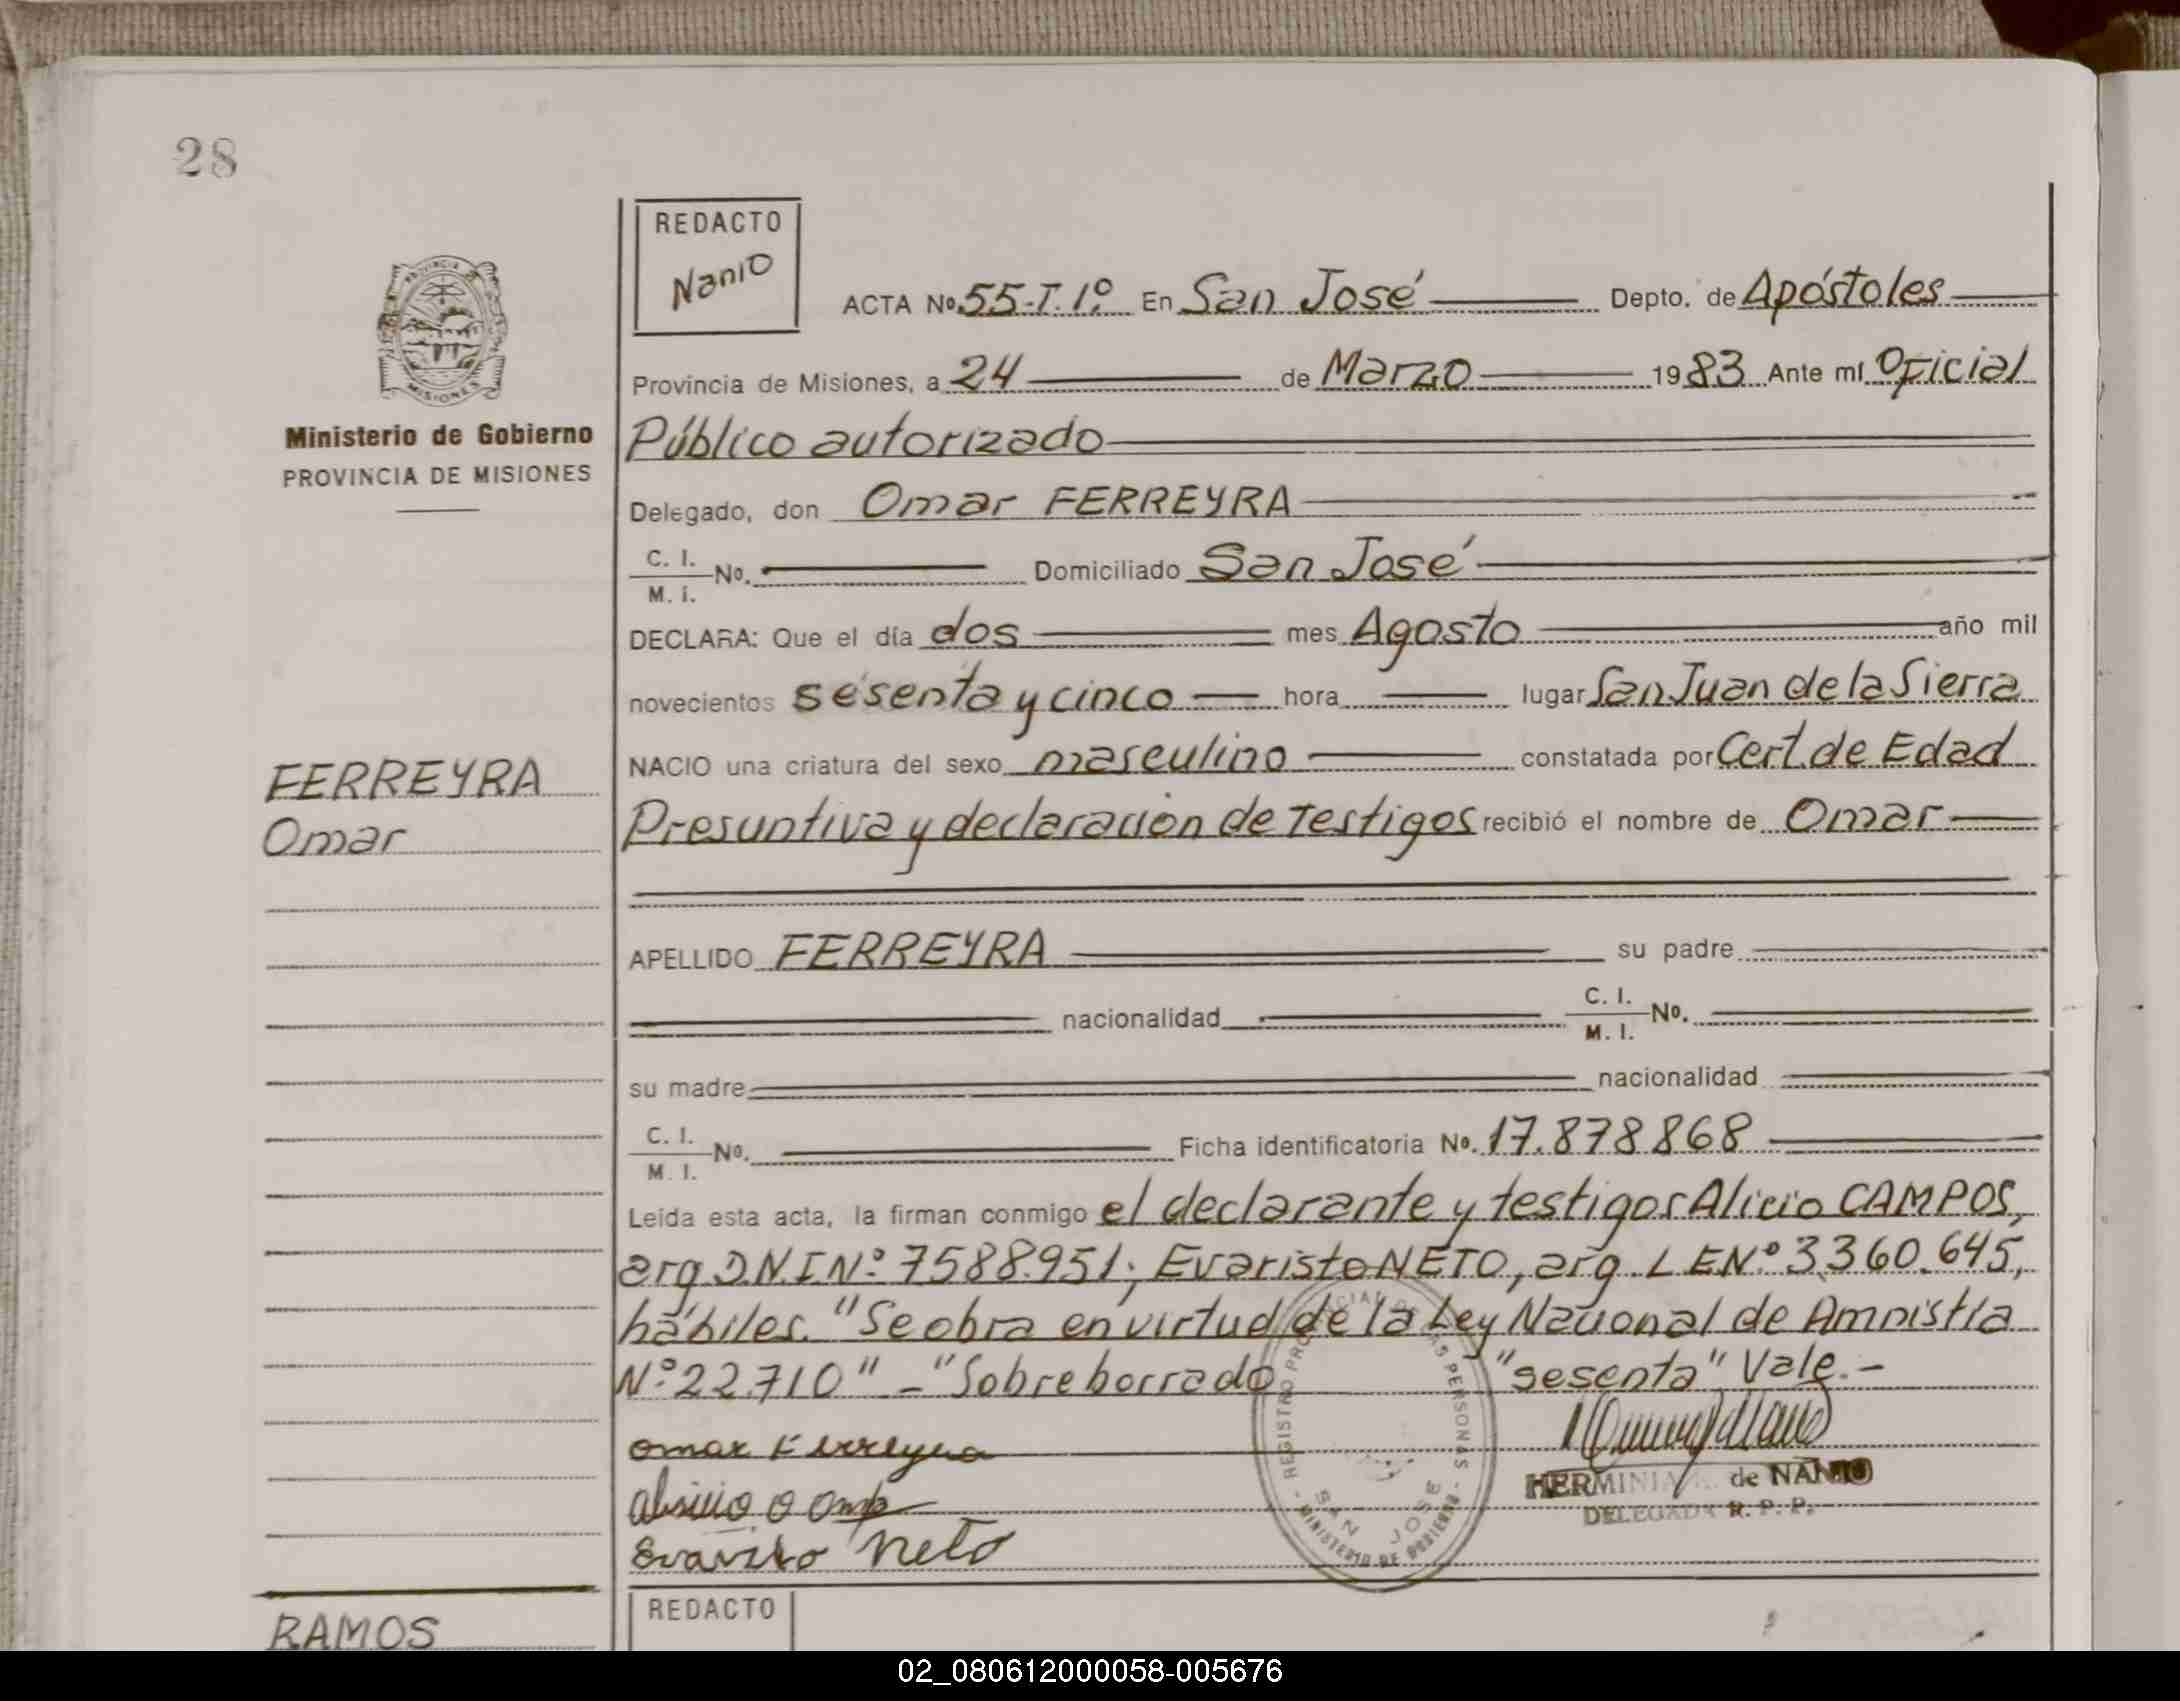 28
REDACTO
Nanio
ACTA Nº 55-T.1º En San José Depto. de Apóstoles
PROVINCIA DE
MISIONES
Provincia de Misiones, a 24 de Marzo 1983 Ante mí Oficial
Ministerio de Gobierno
PROVINCIA DE MISIONES
Público autorizado
Delegado, don Omar FERREYRA
C. I.
M. I. No. Domiciliado San José
DECLARA: Que el día dos mes Agosto año mil
novecientos sesenta y cinco hora lugar San Juan de la Sierra
FERREYRA
Omar
NACIO una criatura del sexo masculino constatada por Cert. de Edad
Presuntiva y declaración de Testigos recibió el nombre de Omar
APELLIDO FERREYRA su padre
nacionalidad C. I.
M. I. No.
su madre nacionalidad
C. I.
M. I. No. Ficha identificatoria No. 17.878868
Leída esta acta, la firman conmigo el declarante y testigos Alicio CAMPOS,
arg D.N.I Nº 7588.951; Evaristo NETO, arg. L E Nº 3.360.645,
hábiles. "Se obra en virtud de la Ley Nacional de Amnistía
Nº 22.710" - "Sobre borrado "sesenta" Vale.-
omar Ferreyra
Evaristo Neto
REGISTRO PROVINCIAL DE LAS PERSONAS
SAN JOSE
MINISTERIO DE GOBIERNO
HERMINIA de NANIO
DELEGADA R. P. P.
RAMOS
REDACTO
02_080612000058-005676